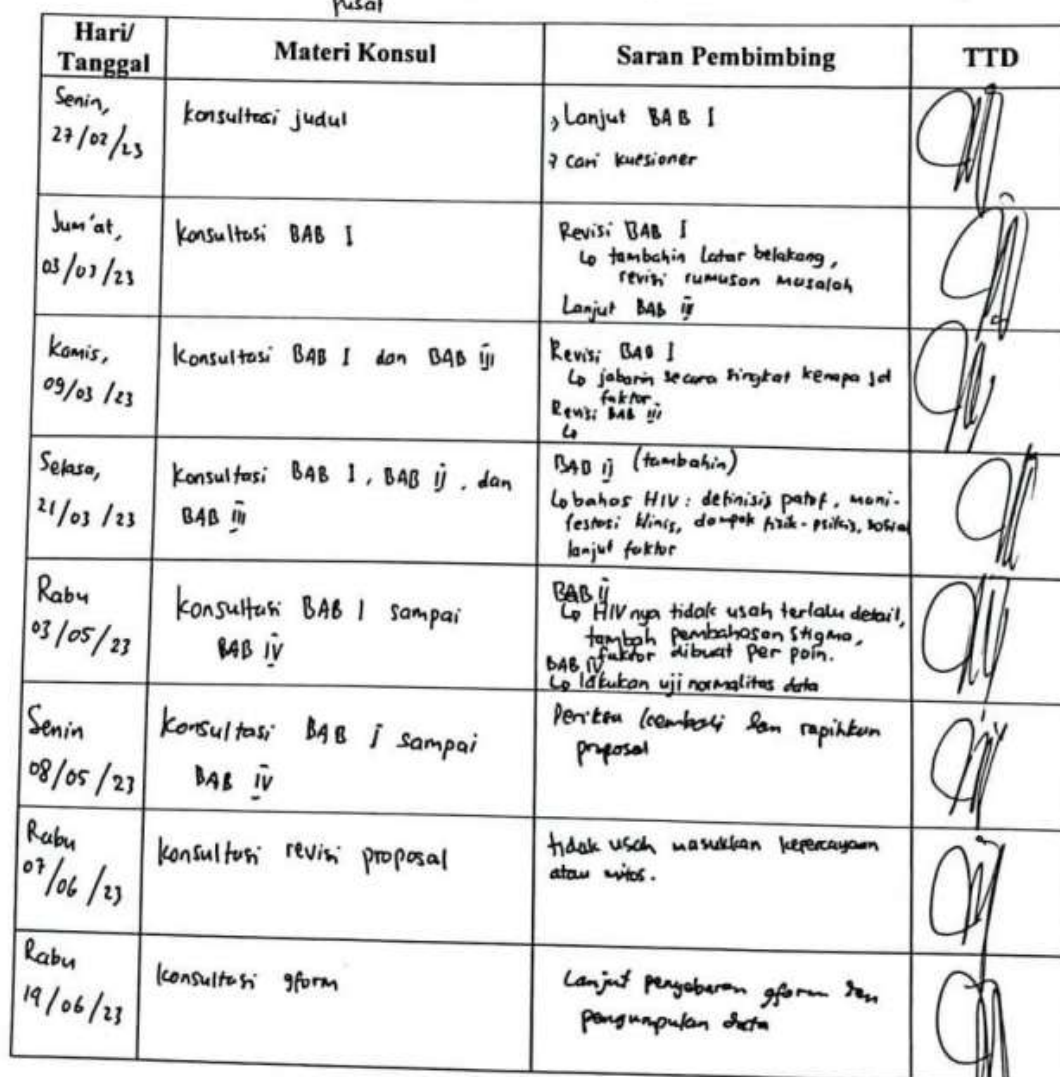 pusat
Hari/
Tanggal
Materi Konsul
Saran Pembimbing
TTD
Senin,
27/02/23
konsultasi judul
> Lanjut BAB I
> Cari kuesioner
Jum'at,
03/03/23
Konsultasi BAB I
Revisi BAB I
↳ tambahin Latar belakang,
revisi rumusan masalah
Lanjut BAB
Kamis,
09/03/23
Konsultasi BAB I dan BAB III
Revisi BAB I
↳ jabarin secara singkat kenapa jd
faktor
Revisi BAB III
↳
Selasa,
21/03/23
Konsultasi BAB I, BAB II, dan
BAB III
BAB II (tambahin)
↳ bahas HIV: definisis patof, mani-
festasi klinis, dampak fisik-psikis, sosial
lanjut faktor
Rabu
03/05/23
konsultasi BAB I sampai
BAB IV
BAB II
↳ HIV nya tidak usah terlalu detail,
tambah pembahasan stigma,
faktor dibuat per poin.
BAB IV
↳ lakukan uji normalitas data
Senin
08/05/23
konsultasi BAB I sampai
BAB IV
Periksa kembali dan rapihkan
proposal
Rabu
07/06/23
konsultasi revisi proposal
tidak usah masukkan kepercayaan
atau mitos.
Rabu
19/06/23
konsultasi gform
Lanjut penyebaran gform dan
pengumpulan data